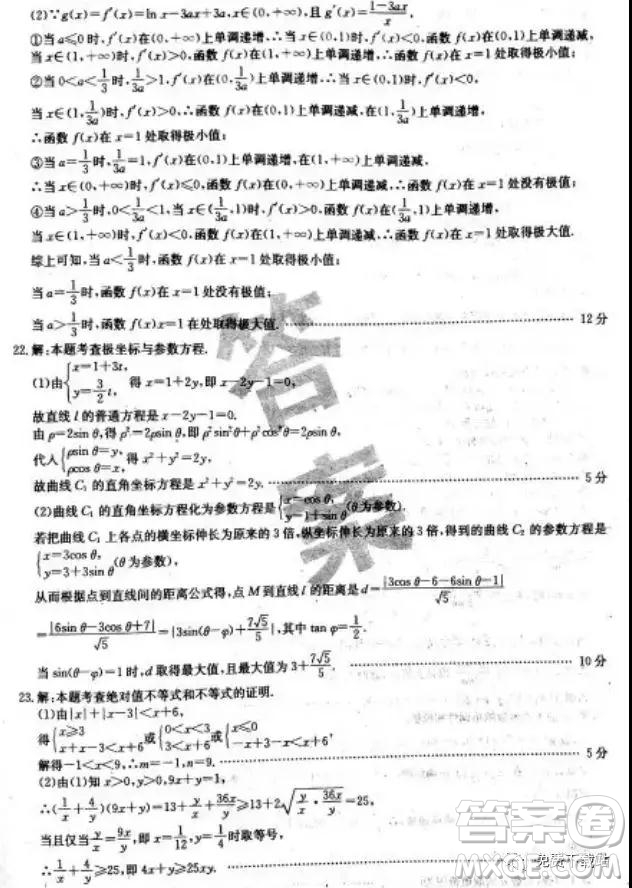 (2)∵g(x)=f′(x)=ln x-3ax+3a,x∈(0,+∞),且 g′(x)=\frac{1-3ax}{x}.
①当 a≤0 时,f′(x)在(0,+∞)上单调递增.∴当 x∈(0,1)时,f′(x)<0,
当 x∈(1,+∞)时,f′(x)>0,∴函数 f(x)在 x=1 处取得极小值;
②当 0<a<\frac{1}{3}时,\frac{1}{3a}>1,f′(x)在(0,\frac{1}{3a})上单调递增.∴当 x∈(0,1)时,f′(x)<0,
当 x∈(1,\frac{1}{3a})时,f′(x)>0,∴函数 f(x)在(0,1)上单调递减,在(1,\frac{1}{3a})上单调递增.
∴函数 f(x)在 x=1 处取得极小值;
③当 a=\frac{1}{3}时,\frac{1}{3a}=1,f′(x)在(0,1)上单调递增,在(1,+∞)上单调递减.
∴当 x∈(0,+∞)时,f′(x)≤0,∴函数 f(x)在(0,+∞)上单调递减,∴函数 f(x)在 x=1 处没有极值;
④当 a>\frac{1}{3}时,0<\frac{1}{3a}<1,当 x∈(\frac{1}{3a},1)时,f′(x)>0,∴函数 f(x)在(\frac{1}{3a},1)上单调递增,
当 x∈(1,+∞)时,f′(x)<0,∴函数 f(x)在(1,+∞)上单调递减,∴函数 f(x)在 x=1 处取得极大值.
综上可知,当 a<\frac{1}{3}时,函数 f(x)在 x=1 处取得极小值;
当 a=\frac{1}{3}时,函数 f(x)在 x=1 处没有极值;
当 a>\frac{1}{3}时,函数 f(x)x=1 在处取得极大值. 12 分
22.解:本题考查极坐标与参数方程.
(1)由{x=1+3t, y=\frac{3}{2}t, 得 x=1+2y,即 x-2y-1=0,
故直线 l 的普通方程是 x-2y-1=0.
由 ρ=2sin θ,得 ρ²=2ρsin θ,即 ρ²sin²θ+ρ²cos²θ=2ρsin θ,
代入{ρsin θ=y, ρcos θ=x, 得 x²+y²=2y.
故曲线 C₁ 的直角坐标方程是 x²+y²=2y. 5 分
(2)曲线 C₁ 的直角坐标方程化为参数方程是{x=cos θ, y-1=sin θ(θ为参数).
若把曲线 C₁ 上各点的横坐标伸长为原来的 3 倍,纵坐标伸长为原来的 3 倍,得到的曲线 C₂ 的参数方程是
{x=3cos θ, y=3+3sin θ(θ为参数),
从而根据点到直线间的距离公式得,点 M 到直线 l 的距离是 d=\frac{|3cos θ-6-6sin θ-1|}{√5}
=\frac{|6sin θ-3cos θ+7|}{√5}=|3sin(θ-φ)+\frac{7√5}{5}|,其中 tan φ=\frac{1}{2}.
当 sin(θ-φ)=1 时,d 取得最大值,且最大值为 3+\frac{7√5}{5}. 10 分
23.解:本题考查绝对值不等式和不等式的证明.
(1)由|x|+|x-3|<x+6,
得{x≥3 x+x-3<x+6或{0<x<3 3<x+6或{x≤0 -x+3-x<x+6,
解得-1<x<9,∴m=-1,n=9. 5 分
(2)由(1)知 x>0,y>0,9x+y=1,
∴(\frac{1}{x}+\frac{4}{y})(9x+y)=13+\frac{y}{x}+\frac{36x}{y}≥13+2√(\frac{y}{x}·\frac{36x}{y})=25,
当且仅当\frac{y}{x}=\frac{9x}{y},即 x=\frac{1}{12},y=\frac{1}{4}时取等号,
∴\frac{1}{x}+\frac{4}{y}≥25,即 4x+y≥25xy.
答案
答案圈
MXQE.COM
免费下载站